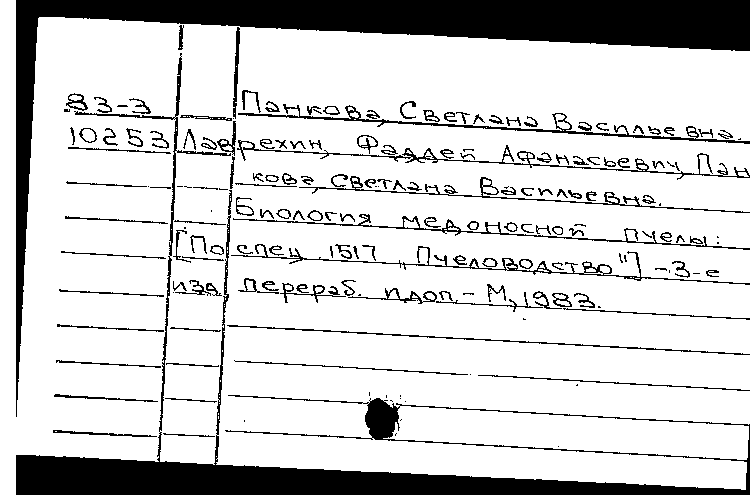 83-3 Панкова, Светлана Васильевна.
10253 Лаврехин, Фаддей Афанасьевич, Пан
кова, Светлана Васильевна.
Биология медоносной пчелы:
[По спец. 1517 „Пчеловодство"] -3-е
изд, перераб. и доп - М, 1983.